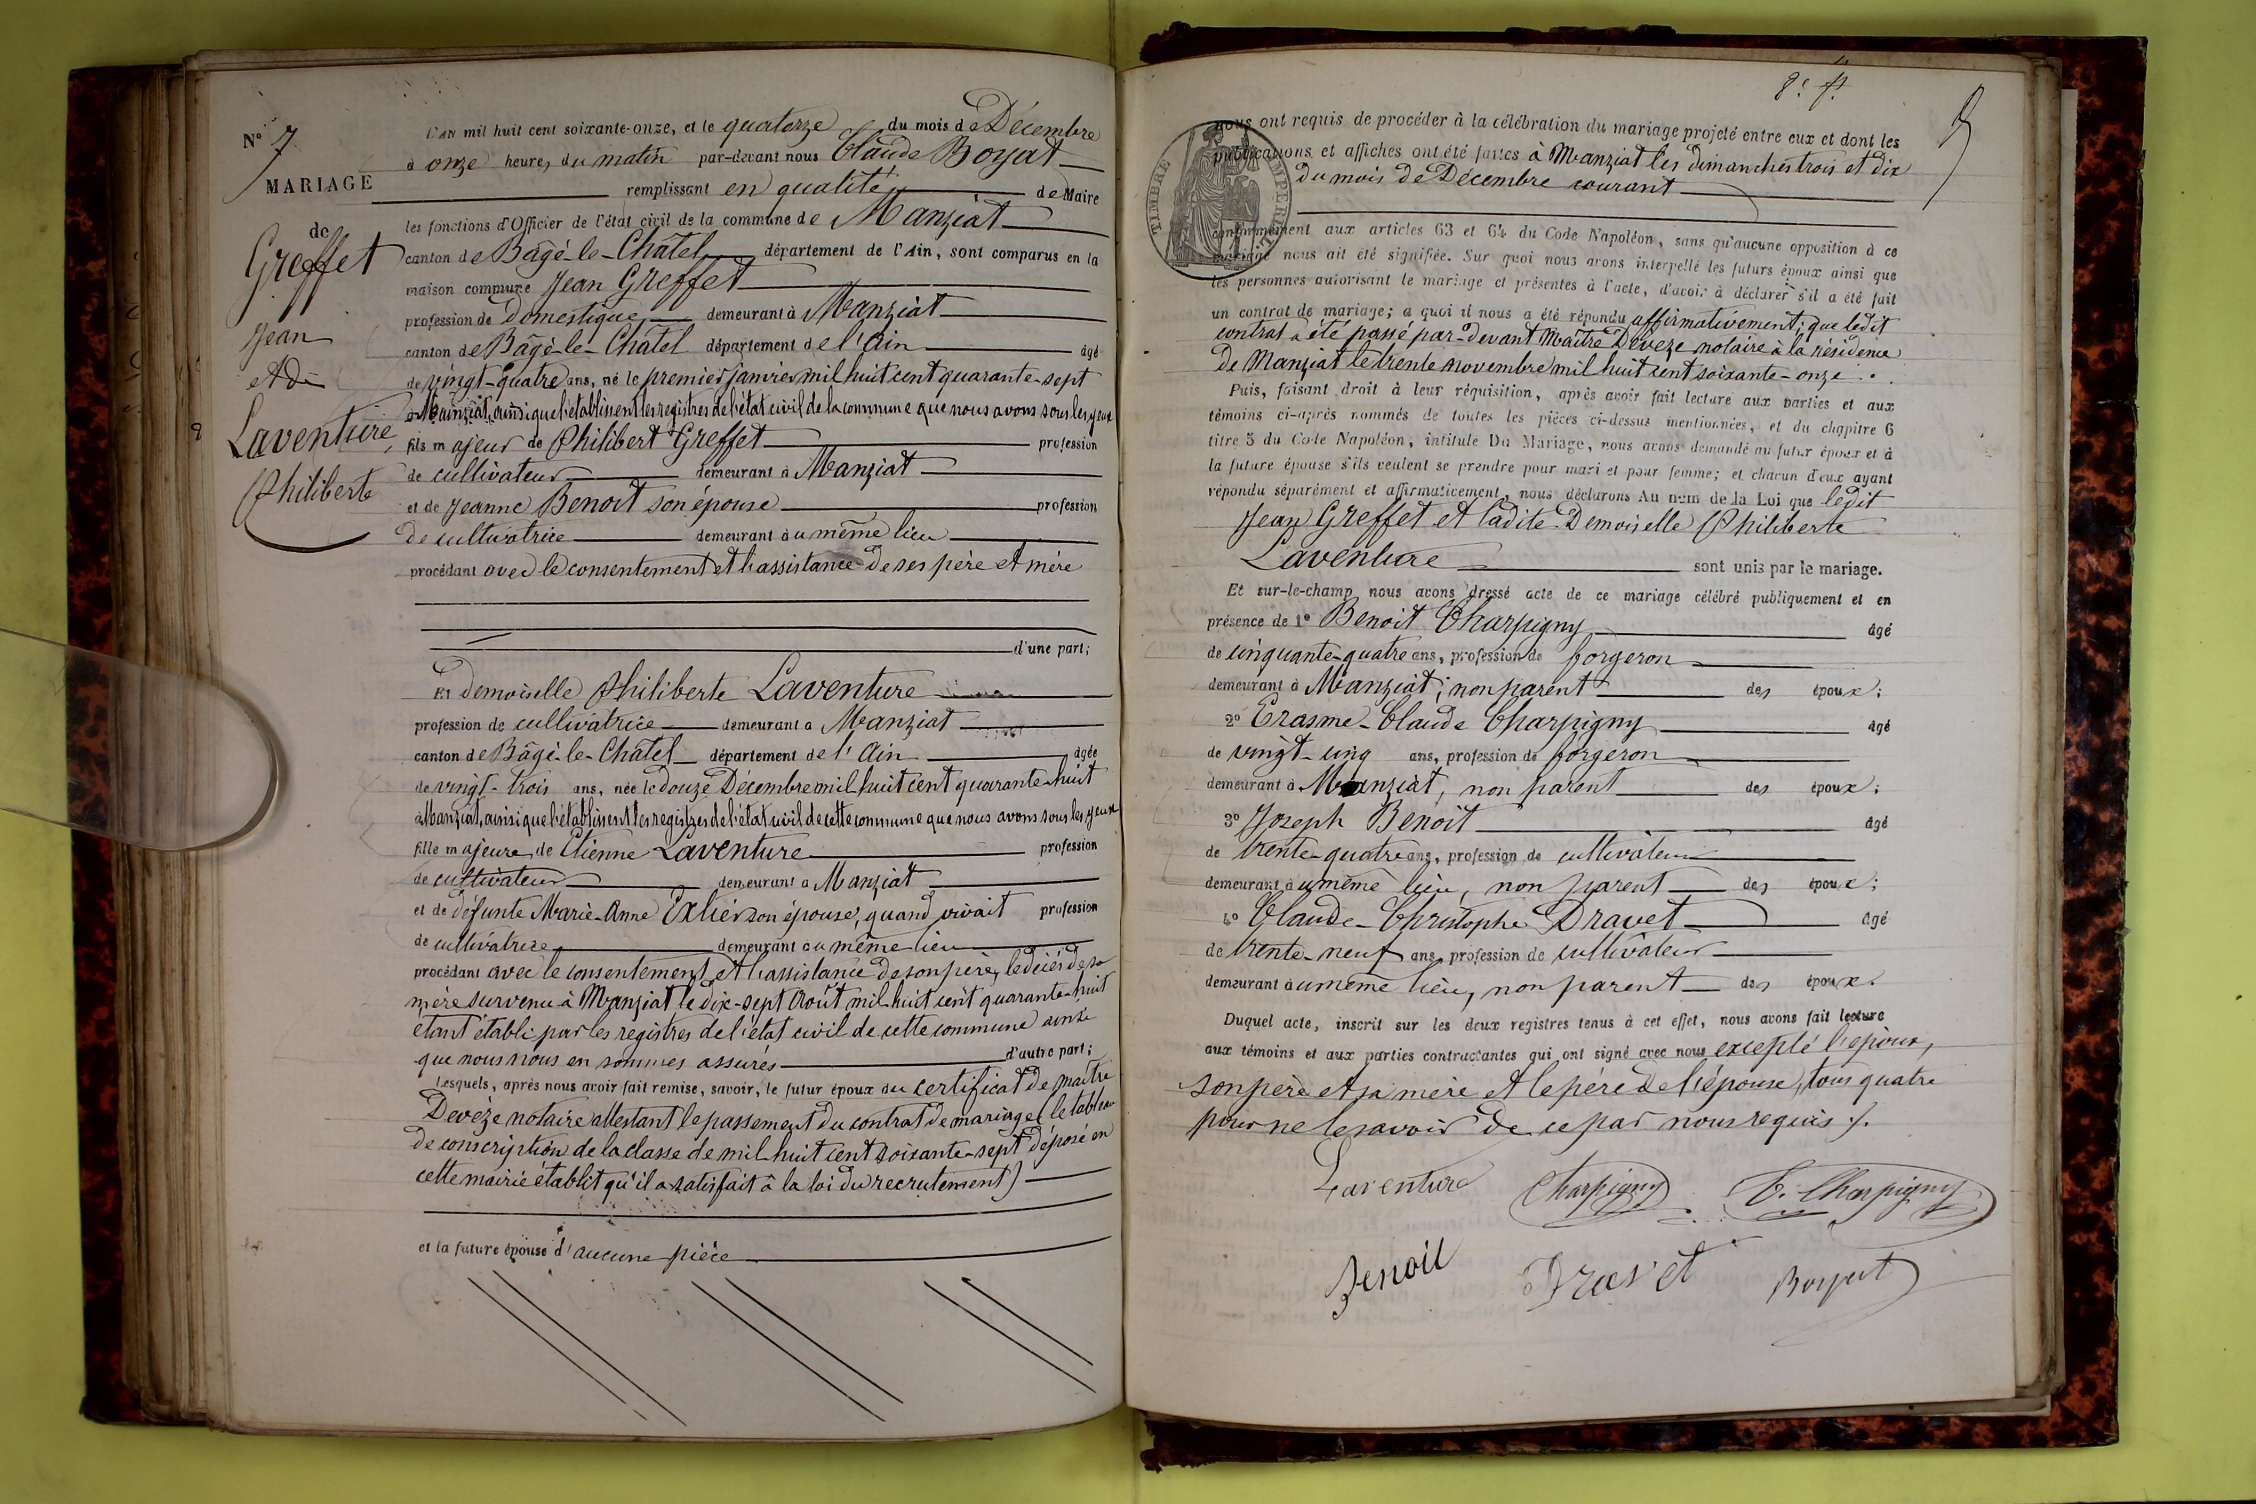 N° 7
MARIAGE
de
Greffet
Jean
et de
Laventure,
Philiberte
L'an mil huit cent soixante-onze, et le quatorze du mois de Décembre
à onze heures du matin par-devant nous Claude Boyat
remplissant en qualité de Maire
les fonctions d'Officier de l'état civil de la commune de Manziat
canton de Bâgé-le-Châtel département de l'Ain, sont comparus en la
maison commune Jean Greffet
profession de Domestique demeurant à Manziat
canton de Bâgé-le-Châtel département de l'Ain âgé
de vingt-quatre ans, né le premier janvier mil huit cent quarante-sept
à Manziat, ainsi que l'établissent les registres de l'état civil de la commune que nous avons sous les yeux
fils majeur de Philibert Greffet profession
de cultivateur demeurant à Manziat
et de Jeanne Benoit son épouse profession
de cultivatrice demeurant au même lieu
procédant avec le consentement et l'assistance de ses père et mère
d'une part;
Et demoiselle Philiberte Laventure
profession de cultivatrice demeurant à Manziat
canton de Bâgé-le-Châtel département de l'Ain âgée
de vingt-trois ans, née le douze Décembre mil huit cent quarante-huit
à Manziat, ainsi que l'établissent les registres de l'état civil de cette commune que nous avons sous les yeux
fille majeure de Etienne Laventure profession
de cultivateur demeurant à Manziat
et de défunte Marie-Anne son épouse, quand vivait profession
de cultivatrice demeurant au même lieu
procédant avec le consentement et l'assistance de son père, le décès de sa
mère survenu à Manziat le dix-sept Août mil huit cent quarante-huit
étant établi par les registres de l'état civil de cette commune ainsi
que nous nous en sommes assurés d'autre part;
Lesquels, après nous avoir fait remise, savoir, le futur époux du certificat de maître
Devèze notaire attestant le passement du contrat de mariage (le tableau
de conscription de la classe de mil huit cent soixante-sept déposé en
cette mairie établit qu'il a satisfait à la loi du recrutement)
et la future épouse d'aucune pièce
8e f.
TIMBRE IMPERIAL
nous ont requis de procéder à la célébration du mariage projeté entre eux et dont les
publications et affiches ont été faites à Manziat les dimanches trois et dix
du mois de Décembre courant
conformément aux articles 63 et 64 du Code Napoléon, sans qu'aucune opposition à ce
mariage nous ait été signifiée. Sur quoi nous avons interpellé les futurs époux ainsi que
les personnes autorisant le mariage et présentes à l'acte, d'avoir à déclarer s'il a été fait
un contrat de mariage; à quoi il nous a été répondu affirmativement; que ledit
contrat a été passé par-devant Maître Devèze notaire à la résidence
de Manziat le trente novembre mil huit cent soixante-onze.
Puis, faisant droit à leur réquisition, après avoir fait lecture aux parties et aux
témoins ci-après nommés de toutes les pièces ci-dessus mentionnées, et du chapitre 6
titre 5 du Code Napoléon, intitulé Du Mariage, nous avons demandé au futur époux et à
la future épouse s'ils veulent se prendre pour mari et pour femme; et chacun d'eux ayant
répondu séparément et affirmativement, nous déclarons Au nom de la Loi que ledit
Jean Greffet et ladite Demoiselle Philiberte
Laventure sont unis par le mariage.
Et sur-le-champ nous avons dressé acte de ce mariage célébré publiquement et en
présence de 1° Benoit Charpigny âgé
de cinquante-quatre ans, profession de forgeron
demeurant à Manziat; non parent des époux;
2° Erasme-Claude Charpigny âgé
de vingt-cinq ans, profession de forgeron
demeurant à Manziat, non parent des époux;
3° Joseph Benoit âgé
de trente-quatre ans, profession de cultivateur
demeurant au même lieu, non parent des époux;
4° Claude-Christophe Dravet âgé
de trente-neuf ans, profession de cultivateur
demeurant au même lieu, non parent des époux.
Duquel acte, inscrit sur les deux registres tenus à cet effet, nous avons fait lecture
aux témoins et aux parties contractantes qui ont signé avec nous excepté l'époux,
son père et sa mère et le père de l'épouse, tous quatre
pour ne le savoir de ce par nous requis.
Laventure Charpigny C. Charpigny
Benoit Dravet Boyat